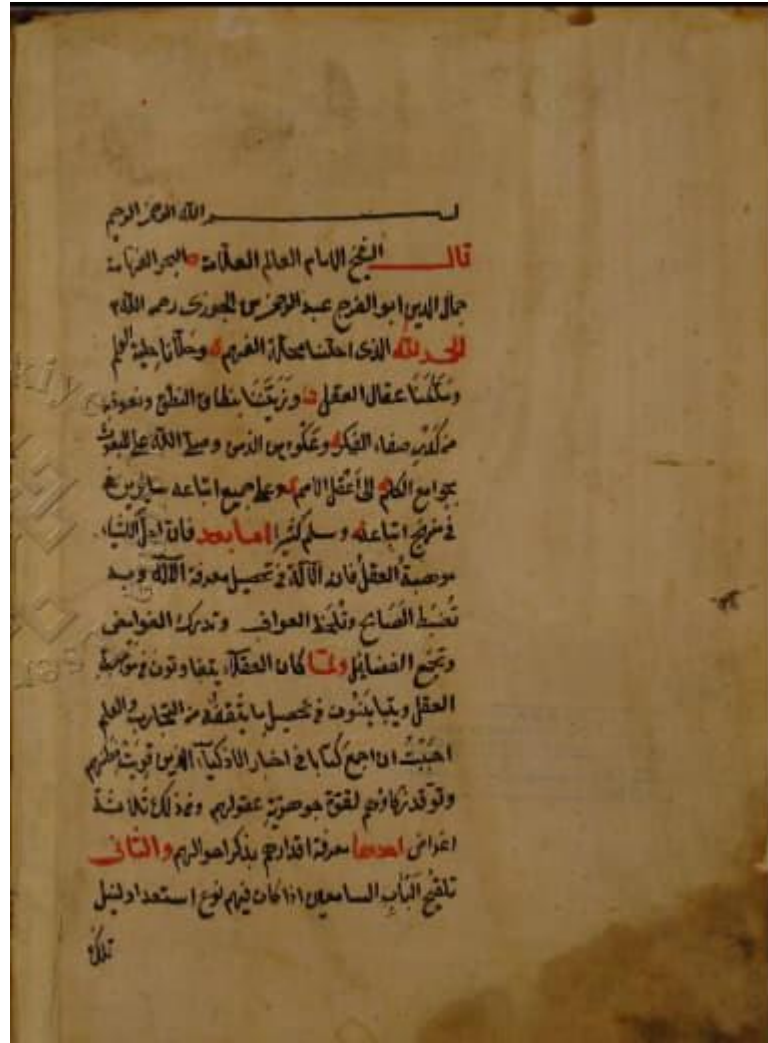 بسم الله الرحمن الرحيم
قال الشيخ الامام العالم العلامة البحر الفهامة
جمال الدين ابو الفرج عبد الرحمن بن الجوزى رحمه الله
الحمد لله الذى احلنا محلة الفهم وحلانا حلية العلم
وملكنا عقال العقل وزيننا بنطاق النطق ونعوذ به
من كدر صفاء الفكر وعكوه بين الذهن وصلى الله على المبعوث
بجوامع الكلم الى اعقل الامم وعلى جميع اتباعه سايرين
فى منهج اتباعه وسلم كثيرا اما بعد فان اجل الاشياء
موهبة العقل فانه الآلة فى تحصيل معرفة الآله وبه
تضبط المصالح وتلحظ العواقب وتدرك الغوامض
وتجمع الفضايل ولما كان العقلآء يتفاوتون فى موهبة
العقل ويتباينون فى تحصيل ما يثقفه من التجارب والعلم
احببت ان اجمع كتابا فى اخبار الاذكيآء الذين قويت فطنهم
وتوقد ذكاؤهم لقوة جوهرية عقولهم وفى ذلك ثلاثة
اغراض احدها معرفة اقدارهم بذكر احوالهم والثانى
تلقيح الباب السامعين اذا كان فيهم نوع استعداد لنيل
تلك